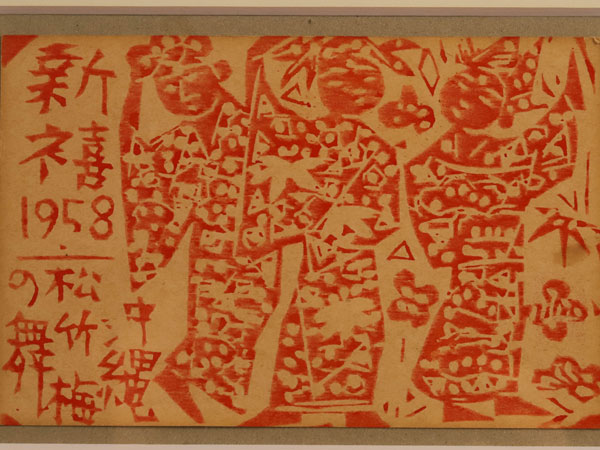 新
禧
1958
沖縄
松竹梅
の舞